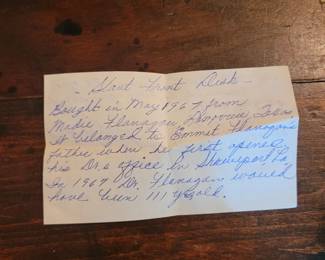 - Slant Front Desk -
Bought in May 1967 from
Madie Flanagan
It belonged to Emmet Flanagan's
father when he first opened
his Dr.s office in Shreveport La
In 1967 Dr. Flanagan would
have been 111 yrs old.